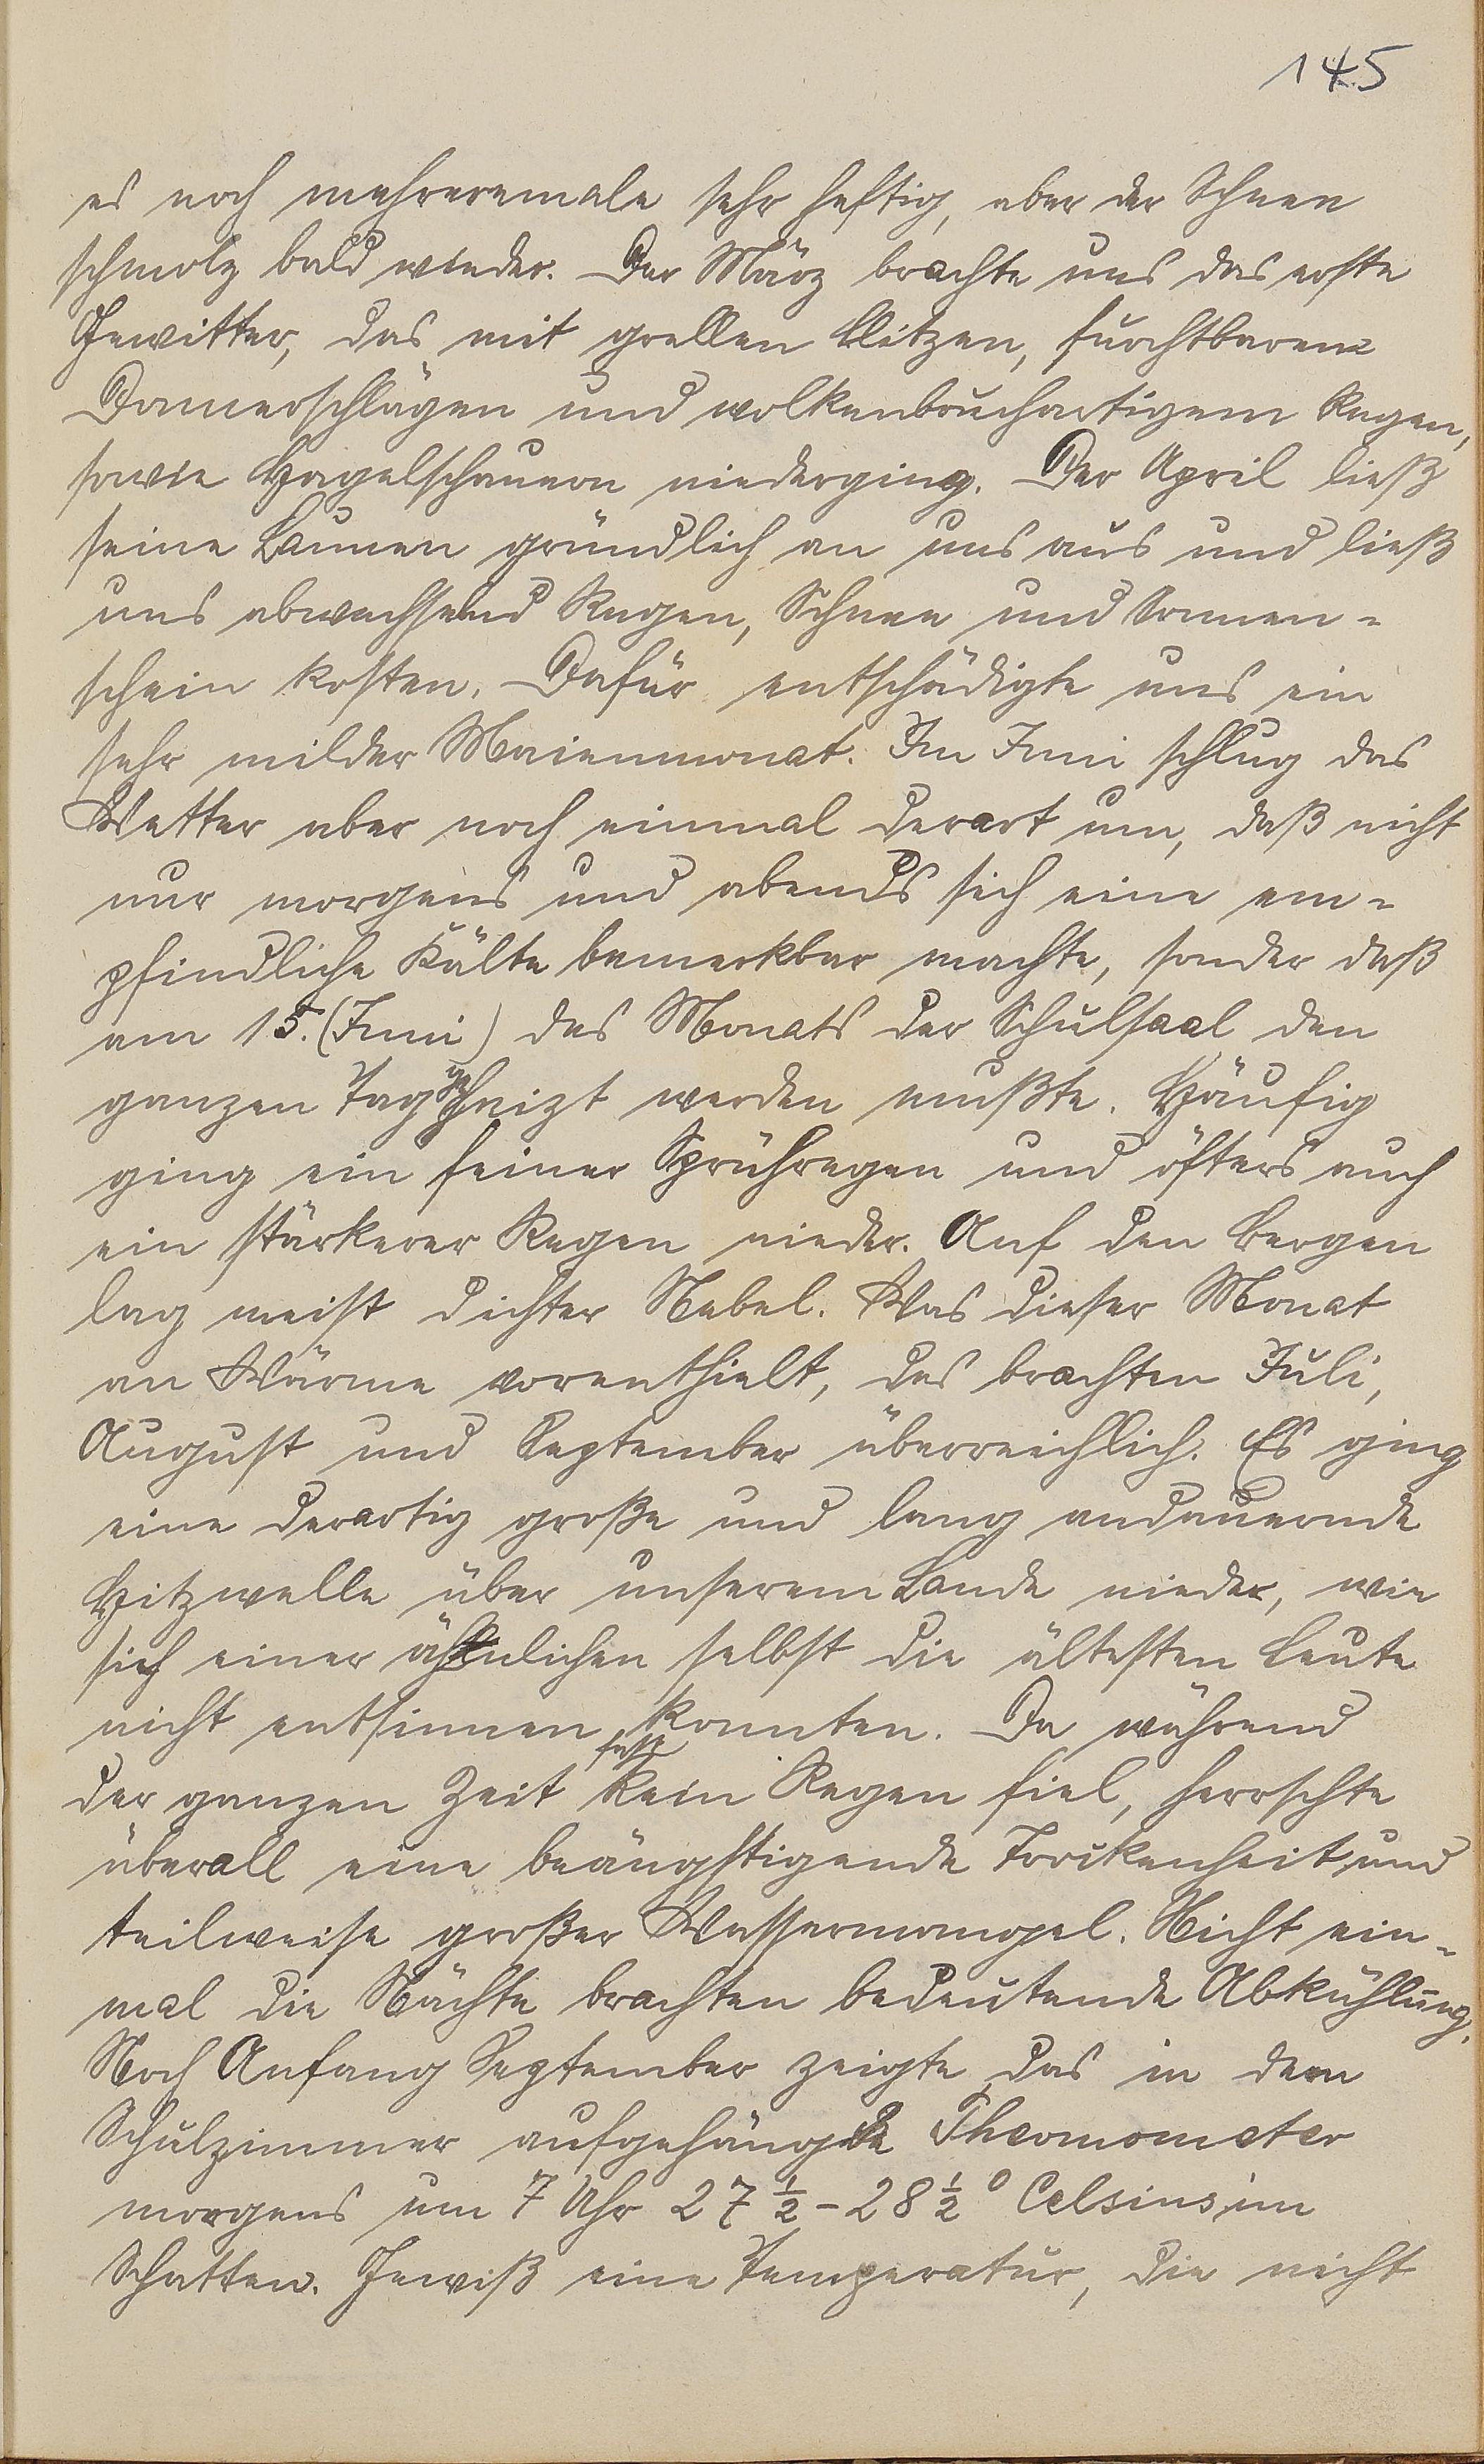 145
es noch mehreremale sehr heftig, aber der Schnee
schmolz bald wieder. Der März brachte uns das erste
Gewitter, das mit grellen Blitzen, furchtbaren
Donnerschlägen und wolkenbruchartigem Regen,
sowie Hagelschauern niederging. Der April ließ
seine Launen gründlich an uns aus und ließ
uns abwechselnd Regen, Schnee und Sonnen-
schein kosten. Dafür entschädigte uns ein
sehr milder Maienmonat. Im Juni schlug das
Wetter aber noch einmal derart um, daß nicht
nur morgens und abends sich eine em-
pfindliche Kälte bemerkbar machte, sonder daß
am 15. (Juni) des Monats der Schulsaal den
ganzen Tag geheizt werden mußte. Häufig
ging ein feiner Sprühregen und öfters auch
ein stärkerer Regen nieder. Auf den Bergen
lag meist dichter Nebel. Was dieser Monat
an Wärme vorenthielt, das brachten Juli,
August und September überreichlich. Es ging
eine derartig große und lang andauernde
Hitzwelle über unserem Lande nieder, wie
sich einer ähnlichen selbst die ältesten Leute
nicht entsinnen konnten. Da während
der ganzen Zeit fast kein Regen fiel, herrschte
überall eine beängstigende Trockenheit und
teilweise großer Wassermangel. Nicht ein-
mal die Nächte brachten bedeutende Abkühlung.
Noch Anfang September zeigte das in dem
Schulzimmer aufgehängte Thermometer
morgens um 7 Uhr 27 ½ - 28 ½ ° Celsius im
Schatten. Gewiß eine Temperatur, die nicht